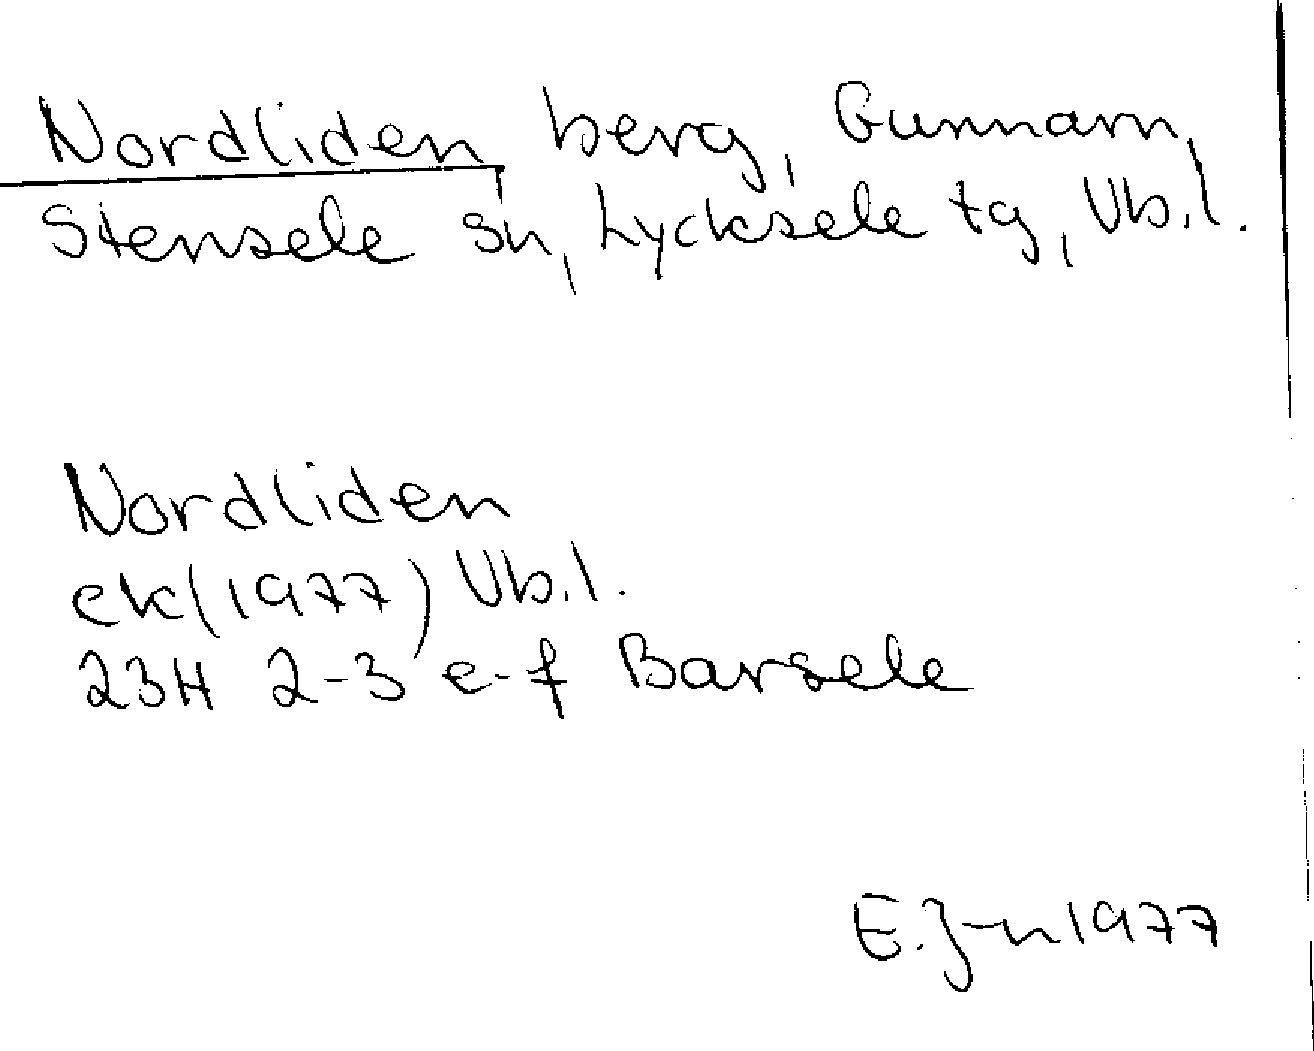 Nordliden berg, Gunnarn,
Stensele sn, Lycksele tg, Vb.l.
Nordliden
ek(1977) Vb.l.
23H 2-3 e-f Barsele
E.J-n 1977